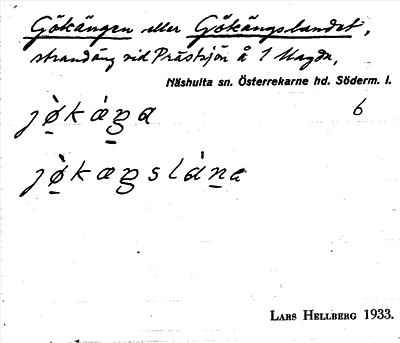 Gökängen eller Gökängslandet,
strandäng vid Prästsjön å 1 Magda,
Näshulta sn. Österrekarne hd. Söderm. l.
6
LARS HELLBERG 1933.